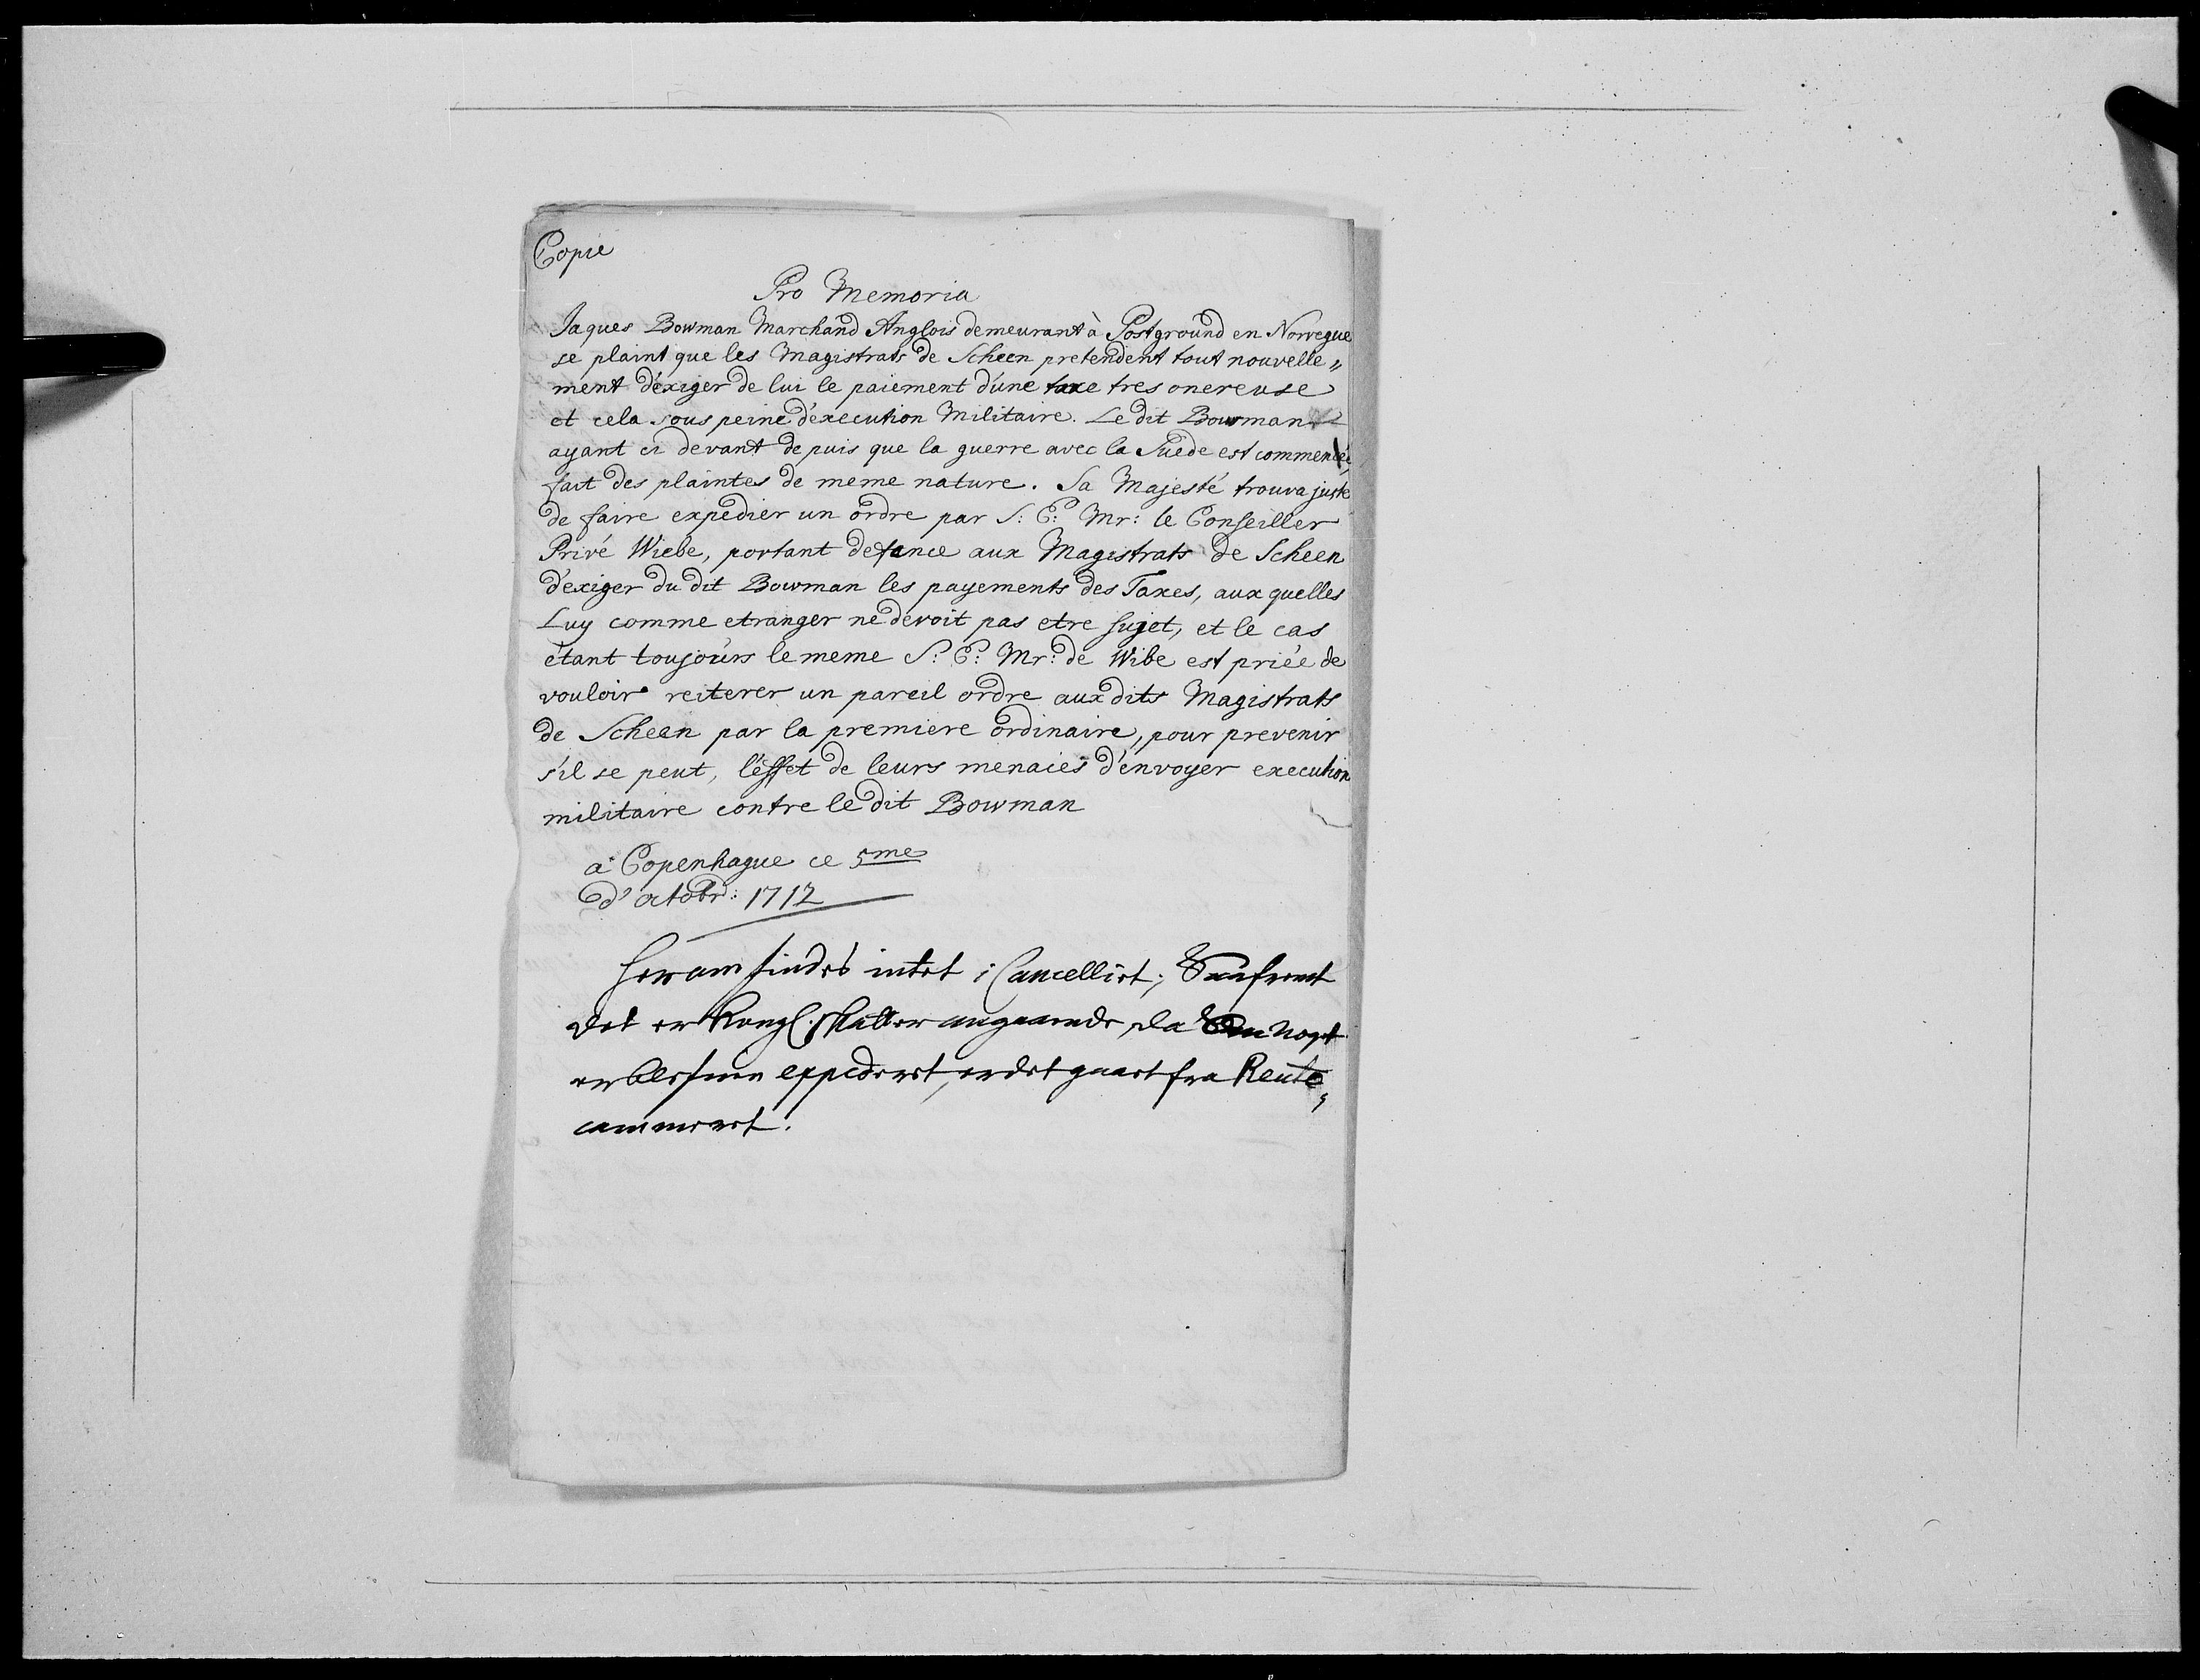 Copie
Pro Memoria
Jaques Bowman Marchand Anglois demeurant à Postground en Norvegue
se plaint que les Magistrats de Scheen pretendent tout nouvelle„
ment d'exiger de lui le paiement d'une taxe tres onereuse
et cela sous peine d'execution Militaire. Le dit Bowman
ayant ci devant depuis que la guerre avec la Suede est commencée
fait des plaintes de meme nature. Sa Majesté trouva juste
de faire expedier un ordre par S: E: Mr: le Conseiller
Privé Wiebe, portant defence aux Magistrats de Scheen
d'exiger du dit Bowman les payements des Taxes, aux quelles
Luy comme etranger ne devoit pas etre sujet, et le cas
étant toujours le meme S: E: Mr: de Wibe est priée de
vouloir reiterer un pareil ordre aux dits Magistrats
de Scheen par la premiere ordinaire, pour prevenir
s'il se peut, l'effet de leurs menaces d'envoyer execution
militaire contre le dit Bowman
à Copenhague ce 5me
d'octobr: 1712
Herom findes intet i Cancelliet;
det er Kongl. Skatter angaaende, da noget
er blefven expederet, er det gaaet fra Rente„
cammeret.